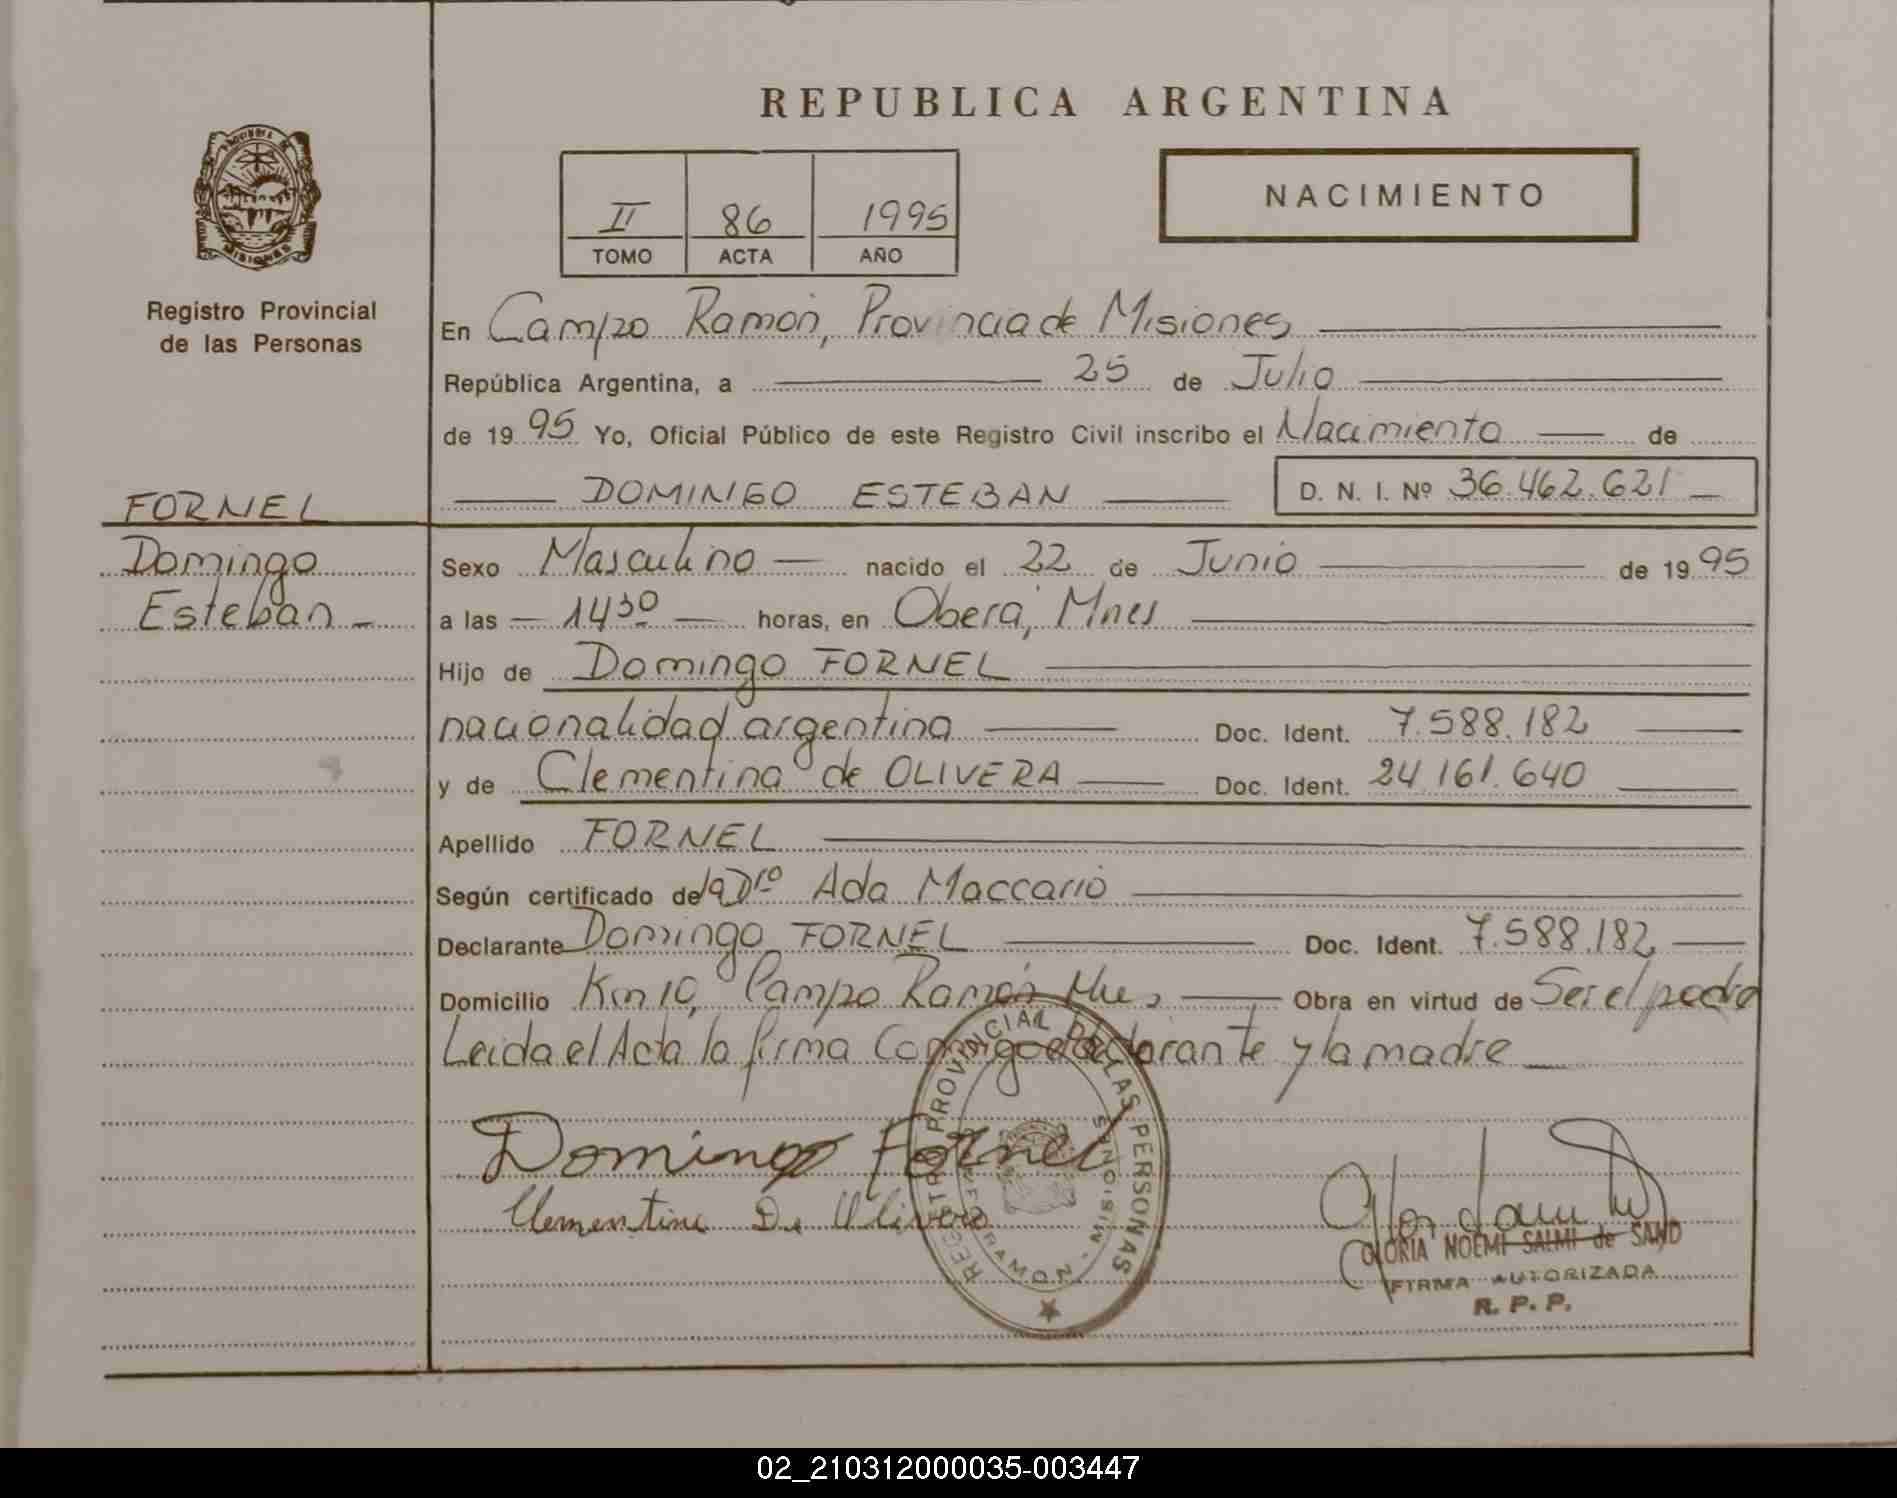 REPUBLICA ARGENTINA
NACIMIENTO
II 86 1995
TOMO ACTA AÑO
MISIONES
Registro Provincial
de las Personas
En Campo Ramón, Provincia de Misiones
República Argentina, a 25 de Julio
de 1995 Yo, Oficial Público de este Registro Civil inscribo el Nacimiento de
FORNEL
DOMINGO ESTEBAN D. N. I. Nº 36.462.621
Domingo
Esteban
Sexo Masculino nacido el 22 de Junio de 1995
a las 14 30 horas, en Oberá, Mnes
Hijo de Domingo FORNEL
nacionalidad argentina Doc. Ident. 7.588.182
y de Clementina de OLIVERA Doc. Ident. 24.161.640
Apellido FORNEL
Según certificado de la Dra Ada Maccario
Declarante Domingo FORNEL Doc. Ident. 7.588.182
Domicilio Km 10, Campo Ramón Mnes Obra en virtud de Ser el padre
Leida el Acta la firma Conmigo el declarante y la madre
Domingo Fornel
Clementina De Olivera
REGISTRO PROVINCIAL DE LAS PERSONAS
RAMON - MISIONES
GLORIA NOEMI SALMI de SAND
FIRMA AUTORIZADA
R. P. P.
02_210312000035-003447